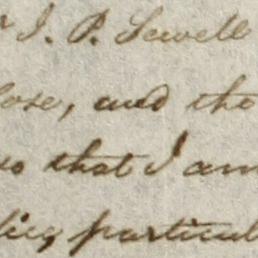 J. P. Sewell
and the
so that I am
particul